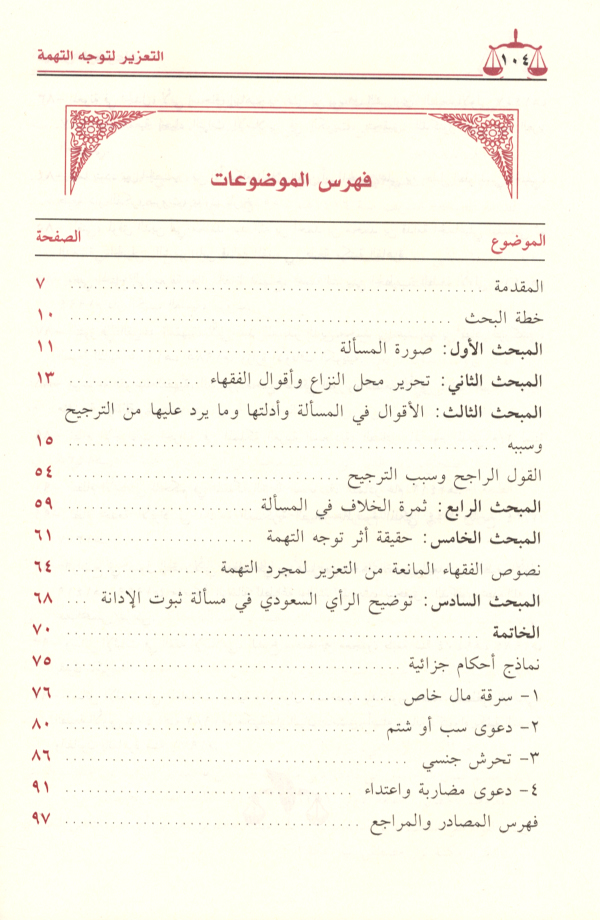 ١٠٤ التعزير لتوجه التهمة
فهرس الموضوعات
الموضوع الصفحة
المقدمة ................................ ٧
خطة البحث ................................ ١٠
المبحث الأول: صورة المسألة ................................ ١١
المبحث الثاني: تحرير محل النزاع وأقوال الفقهاء ................ ١٣
المبحث الثالث: الأقوال في المسألة وأدلتها وما يرد عليها من الترجيح
وسببه ................................ ١٥
القول الراجح وسبب الترجيح ................................ ٥٤
المبحث الرابع: ثمرة الخلاف في المسألة ........................ ٥٩
المبحث الخامس: حقيقة أثر توجه التهمة ........................ ٦١
نصوص الفقهاء المانعة من التعزير لمجرد التهمة ................ ٦٤
المبحث السادس: توضيح الرأي السعودي في مسألة ثبوت الإدانة ... ٦٨
الخاتمة ................................ ٧٠
نماذج أحكام جزائية ................................ ٧٥
١- سرقة مال خاص ................................ ٧٦
٢- دعوى سب أو شتم ................................ ٨٠
٣- تحرش جنسي ................................ ٨٦
٤- دعوى مضاربة واعتداء ................................ ٩١
فهرس المصادر والمراجع ................................ ٩٧